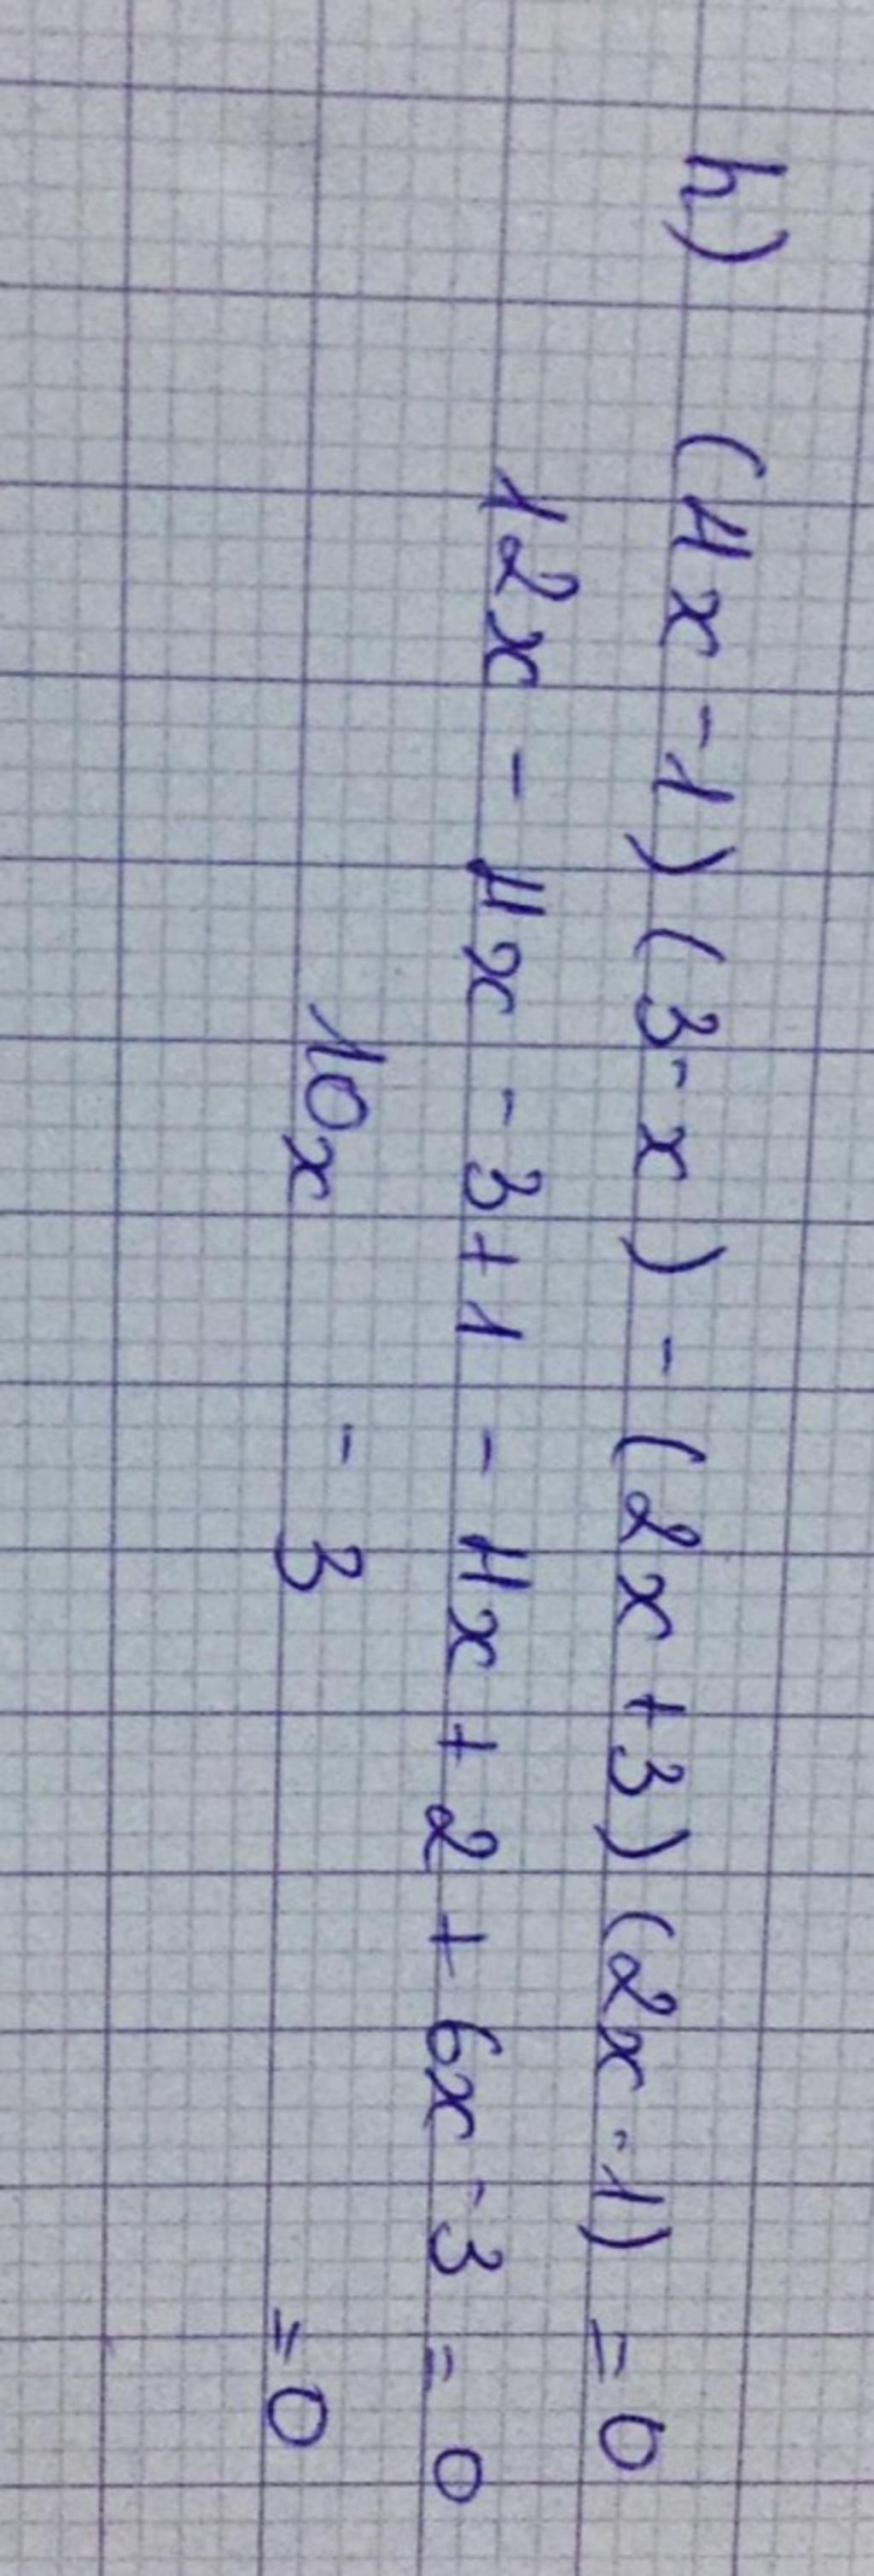 h) (4x - 1) (3 - x) - (2x + 3) (2x - 1) = 0
12x - 4x - 3 + 1 - 4x + 2 + 6x - 3 = 0
10x - 3 = 0